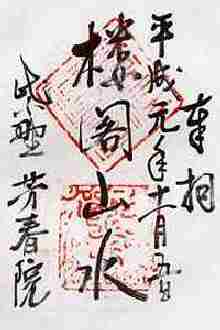 奉拝
平成元年十一月五日
楼閣山水
紫野 芳春院